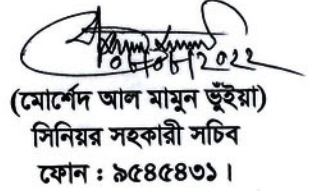 ০৮/০৮/2022
(মোর্শেদ আল মামুন ভূঁইয়া)
সিনিয়র সহকারী সচিব
ফোন : ৯৫৪৫৪৩১।